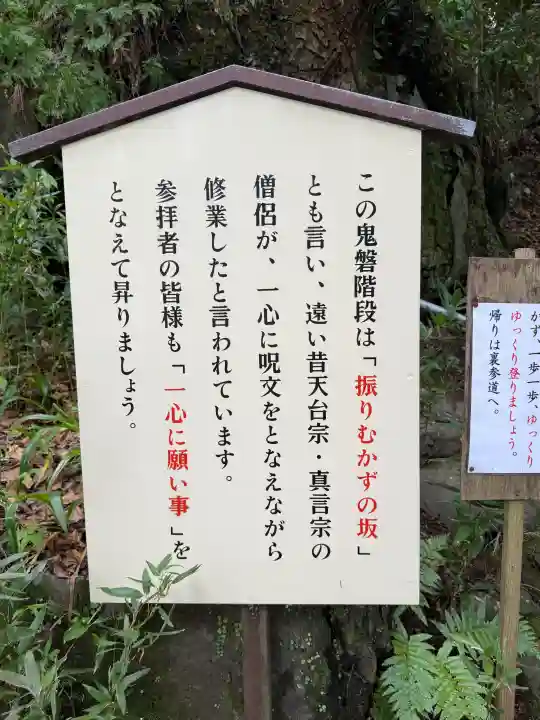 この鬼磐階段は「振りむかずの坂」
とも言い、遠い昔天台宗・真言宗の
僧侶が、一心に呪文をとなえながら
修業したと言われています。
参拝者の皆様も「一心に願い事」を
となえて昇りましょう。
かず、一歩一歩、ゆっくり
ゆっくり登りましょう。
帰りは裏参道へ。